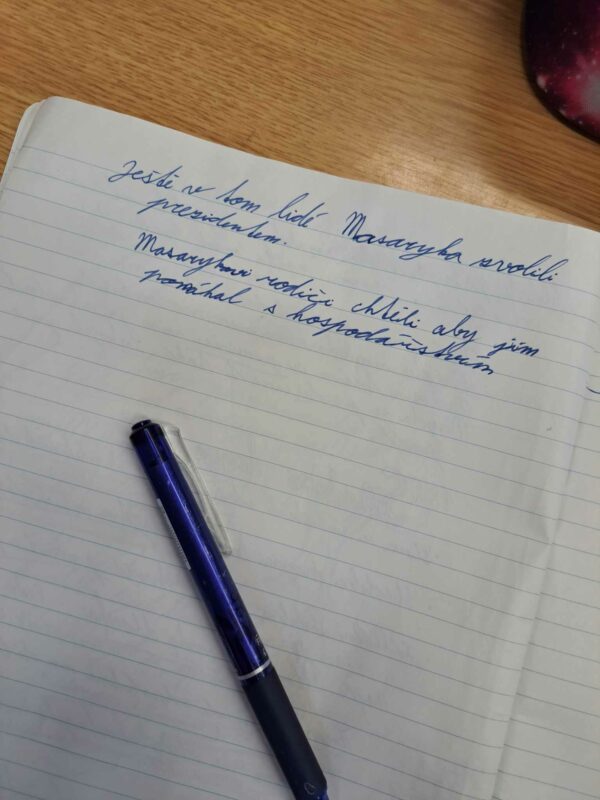 Ještě v tom lidé Masaryka zvolili
prezidentem.
Masarykovi rodiči chtěli aby jim
pomáhal s hospodářstvím